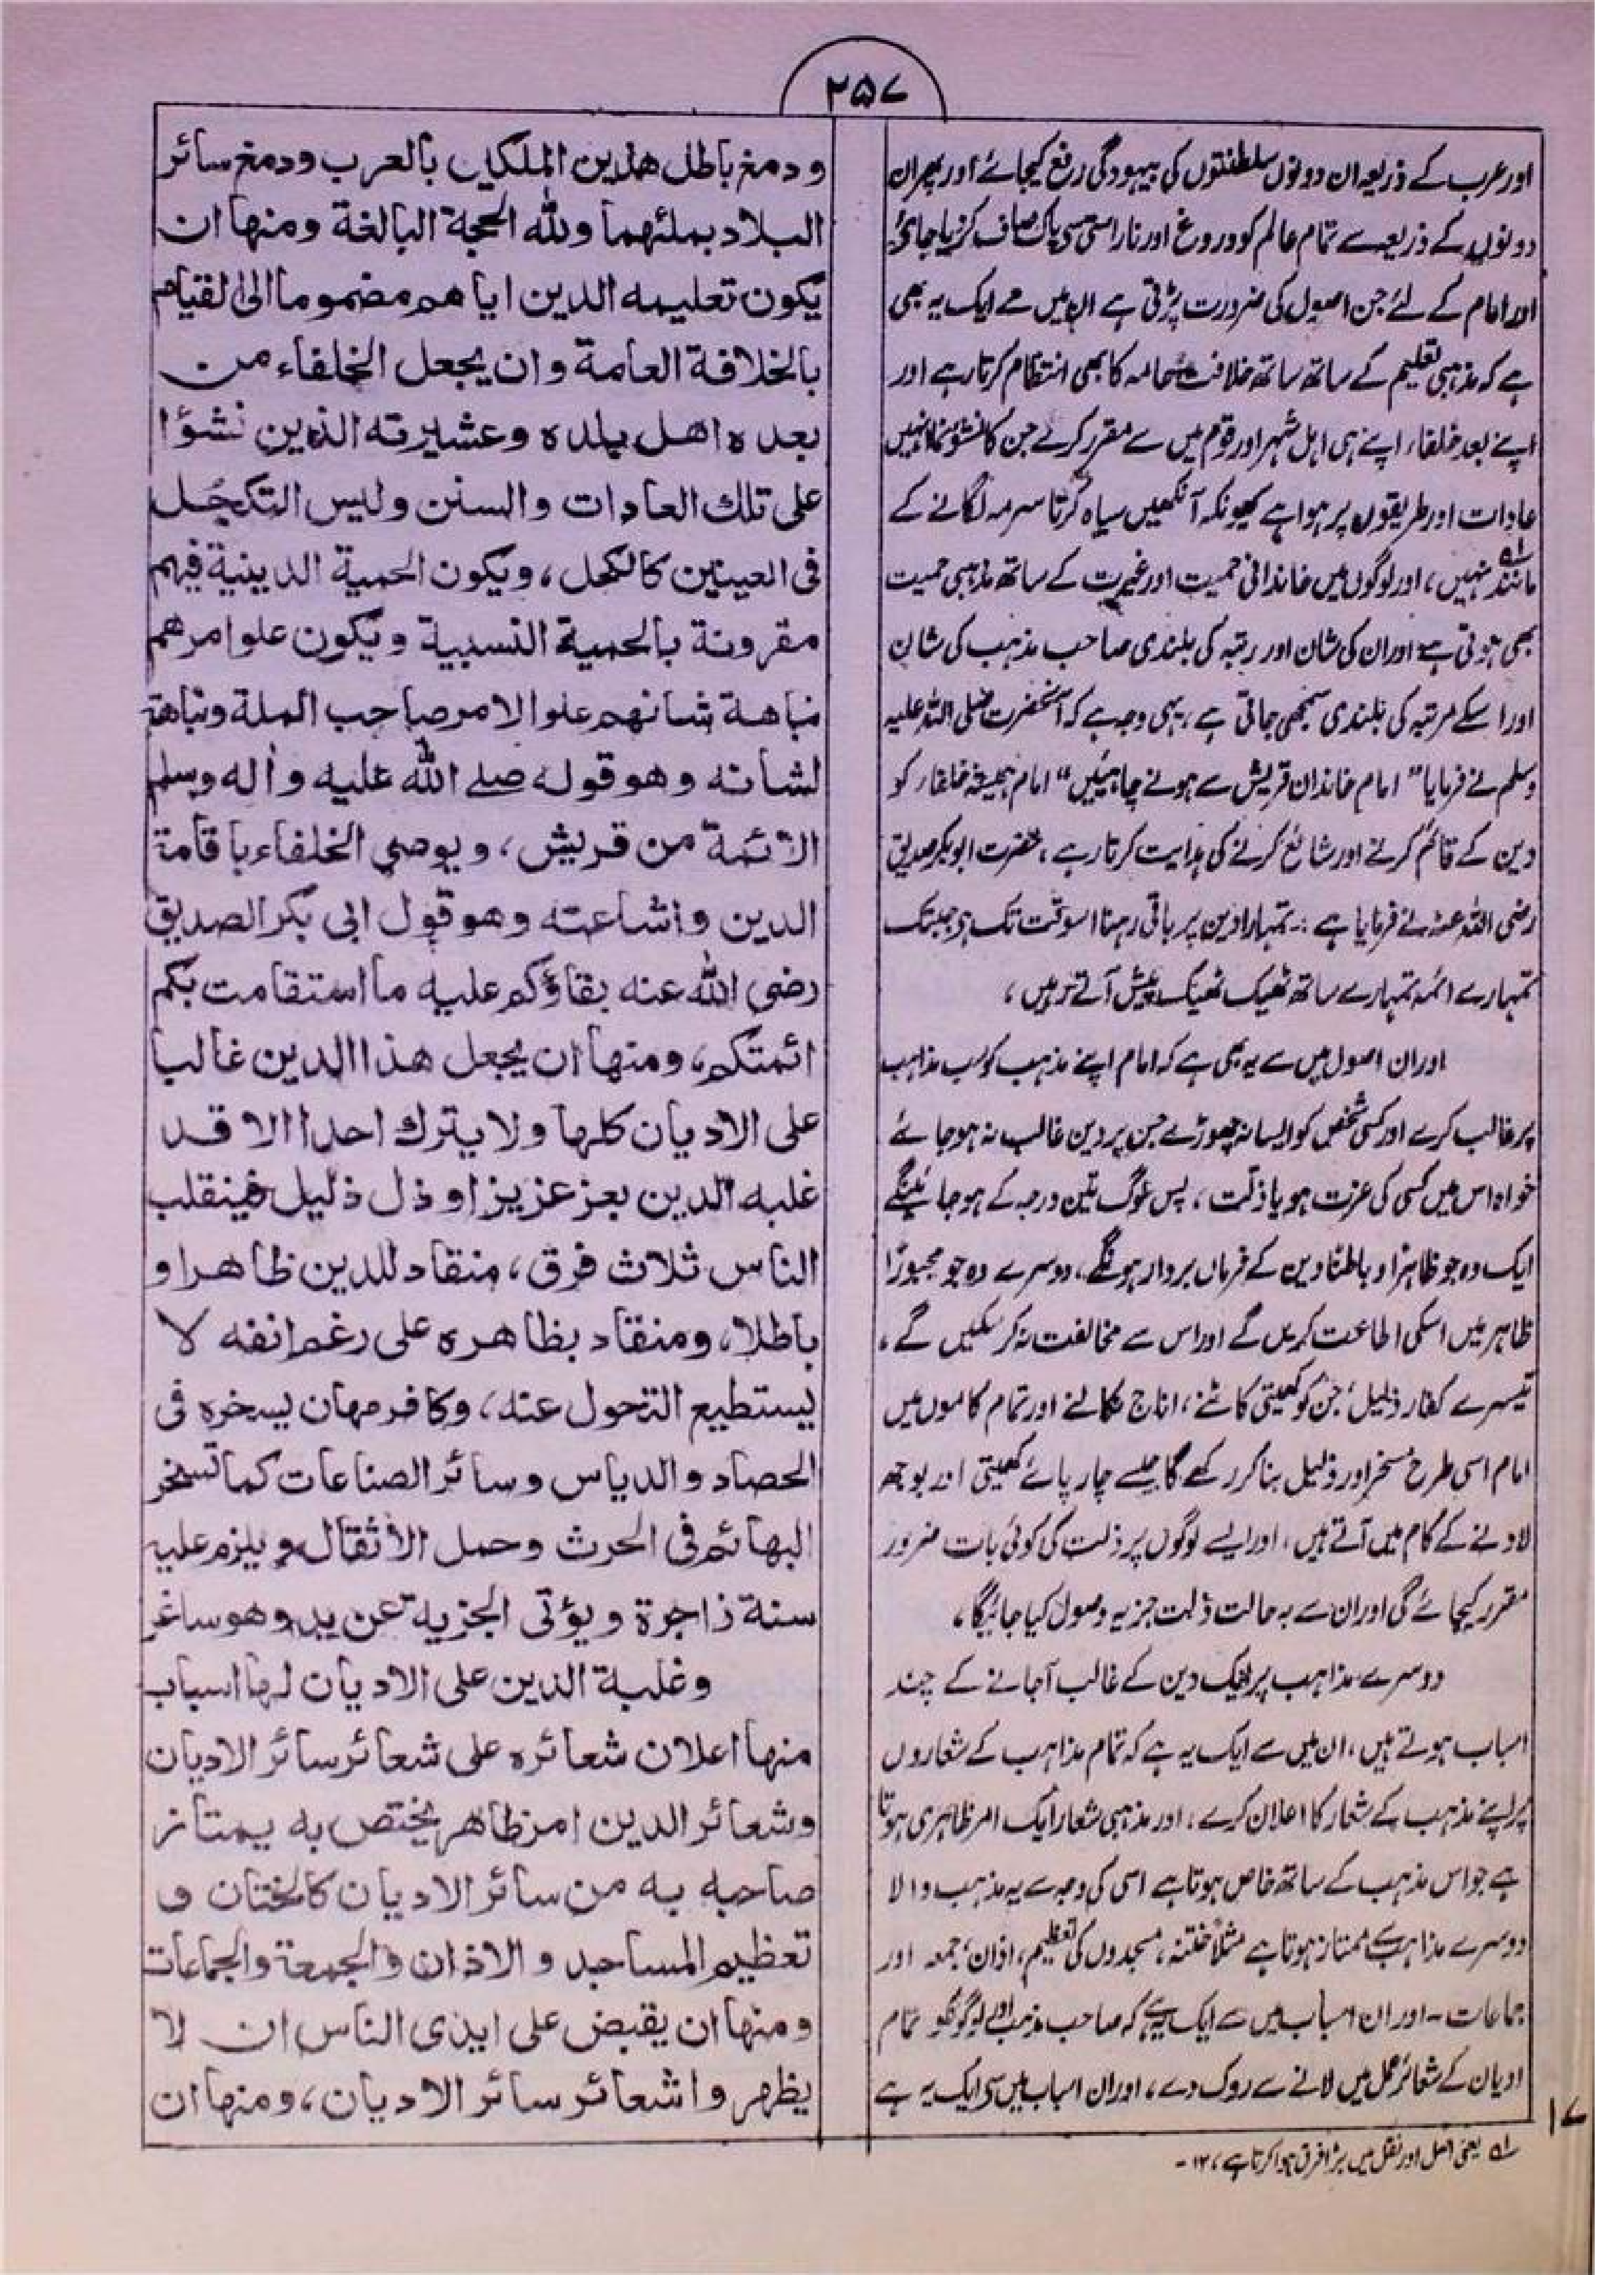 ۲۵۷
اور عرب کے ذریعہ ان دونوں سلطنتوں کی بیہودگی رفع کیجائے اور پھر ان
دونوں کے ذریعہ سے تمام عالم کو دروغ اور ناراستی سی پاک صاف کر دیا جائے
اور امام کے لئے جن اصول کی ضرورت پڑتی ہے ان میں سے ایک یہ بھی
ہے کہ مذہبی تعلیم کے ساتھ ساتھ خلافت عامہ کا بھی انتظام کرتا رہے اور
اپنے بعد خلفاء اپنے ہی اہل شہر اور قوم میں سے مقرر کرے جن کا نشوونما انہیں
عادات اور طریقوں پر ہوا ہے کیونکہ آنکھیں سیاہ کرنا سرمہ لگانے کے
مانند ؎۱ نہیں، اور لوگوں میں خاندانی حمیت اور غیرت کے ساتھ مذہبی حمیت
بھی ہوتی ہے اور ان کی شان اور رتبہ کی بلندی صاحب مذہب کی شان
اور اسکے مرتبہ کی بلندی سمجھی جاتی ہے، یہی وجہ ہے کہ آنحضرت صلی اللہ علیہ
وسلم نے فرمایا "امام خاندان قریش سے ہونے چاہئیں" امام ہمیشہ خلفاء کو
دین کے قائم کرنے اور شائع کرنے کی ہدایت کرتا رہے، حضرت ابوبکر صدیق
رضی اللہ عنہ نے فرمایا ہے :۔ تمہارا دین پر باقی رہنا اسوقت تک ہو جبتک
تمہارے ائمہ تمہارے ساتھ ٹھیک ٹھیک پیش آتے رہیں،
اور ان اصول میں سے یہ بھی ہے کہ امام اپنے مذہب کو سب مذاہب
پر غالب کرے اور کسی شخص کو ایسا نہ چھوڑے جس پر دین غالب نہ ہو جائے
خواہ اس میں کسی کی عزت ہو یا ذلت، پس لوگ تین درجہ کے ہو جائینگے
ایک وہ جو ظاہرًا و باطنًا دین کے فرماں بردار ہونگے، دوسرے وہ جو مجبورًا
ظاہر میں اسکی اطاعت کریں گے اور اس سے مخالفت نہ کر سکیں گے،
تیسرے کفار ذلیل، جن کو کھیتی کاٹنے، اناج نکالنے اور تمام کاموں میں
امام اسی طرح مسخر اور ذلیل بنا کر رکھے گا جیسے چار پائے کھیتی اور بوجھ
لادنے کے کام میں آتے ہیں، اور ایسے لوگوں پر ذلت کی کوئی بات ضرور
مقرر کیجائے گی اور ان سے بہ حالت ذلت جزیہ وصول کیا جائیگا،
دوسرے مذاہب پر ایک دین کے غالب آجانے کے چند
اسباب ہوتے ہیں، ان میں سے ایک یہ ہے کہ تمام مذاہب کے شعاروں
پر اپنے مذہب کے شعار کا اعلان کرے، اور مذہبی شعار ایک امر ظاہری ہوتا
ہے جو اس مذہب کے ساتھ خاص ہوتا ہے اسی کی وجہ سے یہ مذہب والا
دوسرے مذاہب سے ممتاز ہوتا ہے مثلًا ختنہ، مسجدوں کی تعظیم، اذان، جمعہ اور
جماعات - اور ان اسباب میں سے ایک یہ ہے کہ صاحب مذہب لوگونکو تمام
ادیان کے شعائر عمل میں لانے سے روک دے، اور ان اسباب میں سی ایک یہ ہے
ودمغ باطل هذين الملكين بالعرب ودمغ سائر
البلاد بملئهما ولله الحجة البالغة ومنها ان
يكون تعليمه الدين اياهم مضموما الى القيام
بالخلافة العامة وان يجعل الخلفاء من
بعده اهل بلده وعشيرته الذين نشؤا
على تلك العادات والسنن وليس التكحل
فى العينين كالكحل، ويكون الحمية الدينية فيهم
مقرونة بالحمية النسبية ويكون علو امرهم
نباهة شانهم علوا لامر صاحب الملة ونباهة
لشانه وهو قوله صلے الله عليه واله وسلم
الائمة من قريش، ويوصى الخلفاء باقامة
الدين واشاعته وهو قول ابى بكر الصديق
رضى الله عنه بقاؤكم عليه ما استقامت بكم
ائمتكم، ومنها ان يجعل هذا الدين غالبا
على الاديان كلها ولا يترك احدا الا قد
غلبه الدين بعز عزيز او ذل ذليل فينقلب
الناس ثلاث فرق، منقاد للدين ظاهرا و
باطلا، ومنقاد بظاهره على رغم انفه لا
يستطيع التحول عنه، وكافر مهان يسخره فى
الحصاد والدياس وسائر الصناعات كما تسخر
البهائم فى الحرث وحمل الاثقال ويلزم عليه
سنة زاجرة ويؤتى الجزية عن يد وهو ساغر
وغلبة الدين على الاديان لها اسباب
منها اعلان شعائره على شعائر سائر الاديان
وشعائر الدين امر ظاهر يختص به يمتاز
صاحبه به من سائر الاديان كالختان و
تعظيم المساجد والاذان والجمعة والجماعات
ومنها ان يقبض على ايدى الناس ان لا
يظهروا شعائر سائر الاديان، ومنها ان
؎۱ یعنی اصل اور نقل میں بڑا فرق ہوا کرتا ہے، ۱۲-
۱۷